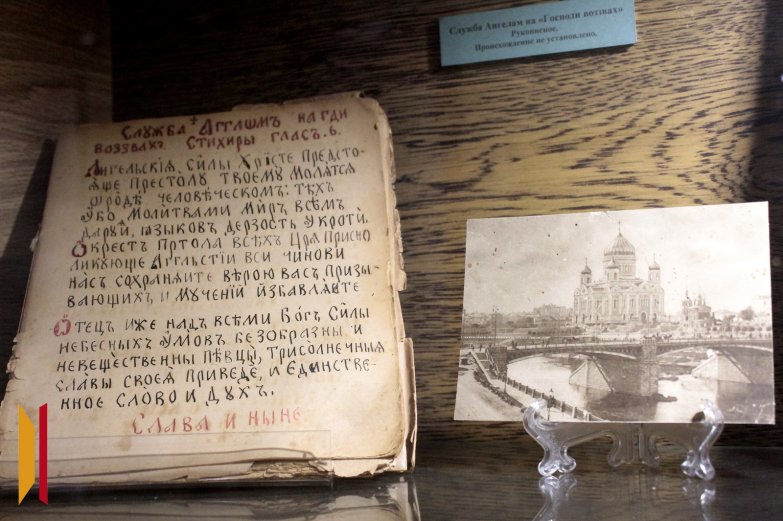 Служба Ангелам на «Господи воззвах»
Рукописное.
Происхождение не установлено.
Слꙋжба Агг҃лѡмъ на гд҃и
воззвахъ. стихиры гласъ. 6.
Ангельскїѧ си́лы Хрїсте предсто-
ѧще престолꙋ твоемꙋ молѧтсѧ
ѡ родѣ человѣческомъ: тѣхъ
ᲂубо молитвами миръ всѣмъ
дарꙋй, ꙗзыковъ дерзость укроти.
Окрестъ пртⷭ҇ола всѣхъ Царѧ присно
ликующе Агг҃льстїи вси чинови
насъ сохранѧйте вѣрою васъ призы-
вающихъ, и мученїй избавлѧйте.
Отецъ иже над всѣми Богъ, си́лы
небесныхъ умовъ безобразны и
невещественны пѣвцы, трисолнечныѧ
славы своеѧ приведе, и единстве-
нное слово и духъ.
Слава и ныне